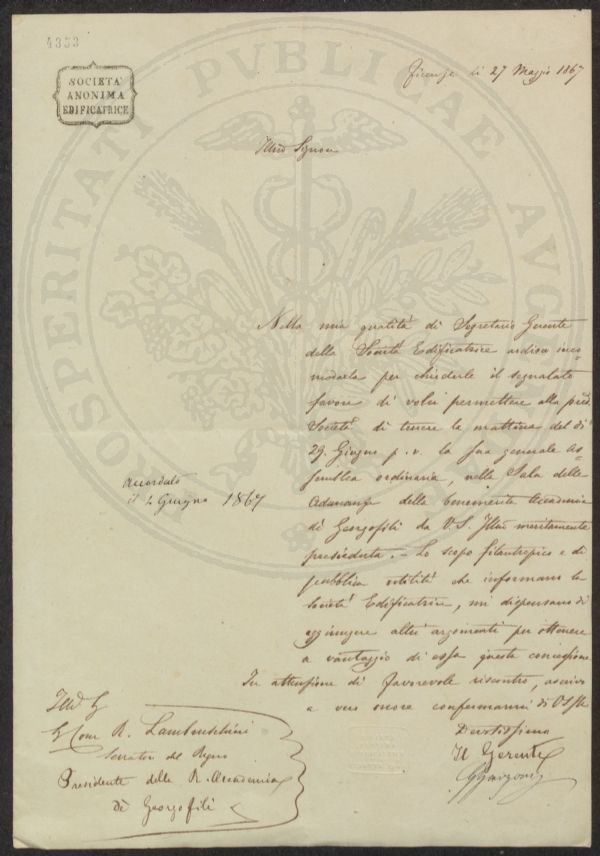 4353
SOCIETÀ
ANONIMA
EDIFICATRICE
PROSPERITATI PVBLICAE AVGENDAE
Firenze li 27 Maggio 1867
Illmo Signore
Nella mia qualità di Segretario Gerente
della Società Edificatrice ardisco inco-
modarla per chiederle il segnalato
favore di voler permettere alla pred.
Società di tenere la mattina del dì
29. Giugno p. v. la sua generale As-
semblea ordinaria, nella Sala delle
Adunanze della benemerita Accademia
di Georgofili da V. S. Illma meritamente
presieduta. – Lo scopo filantropico e di
pubblica utilità che informano la
Società Edificatrice, mi dispensano di
aggiungere altri argomenti per ottenere
a vantaggio di essa questa concessione
In attenzione di favorevole riscontro, ascrivo
a vero onore confermarmi di VS Illma
Devotissimo
Il Gerente
accordato
il 4 Giugno 1867
Illmo Sig
Comm R. Lambruschini
Senatore del Regno
Presidente della R. Accademia
di Georgofili